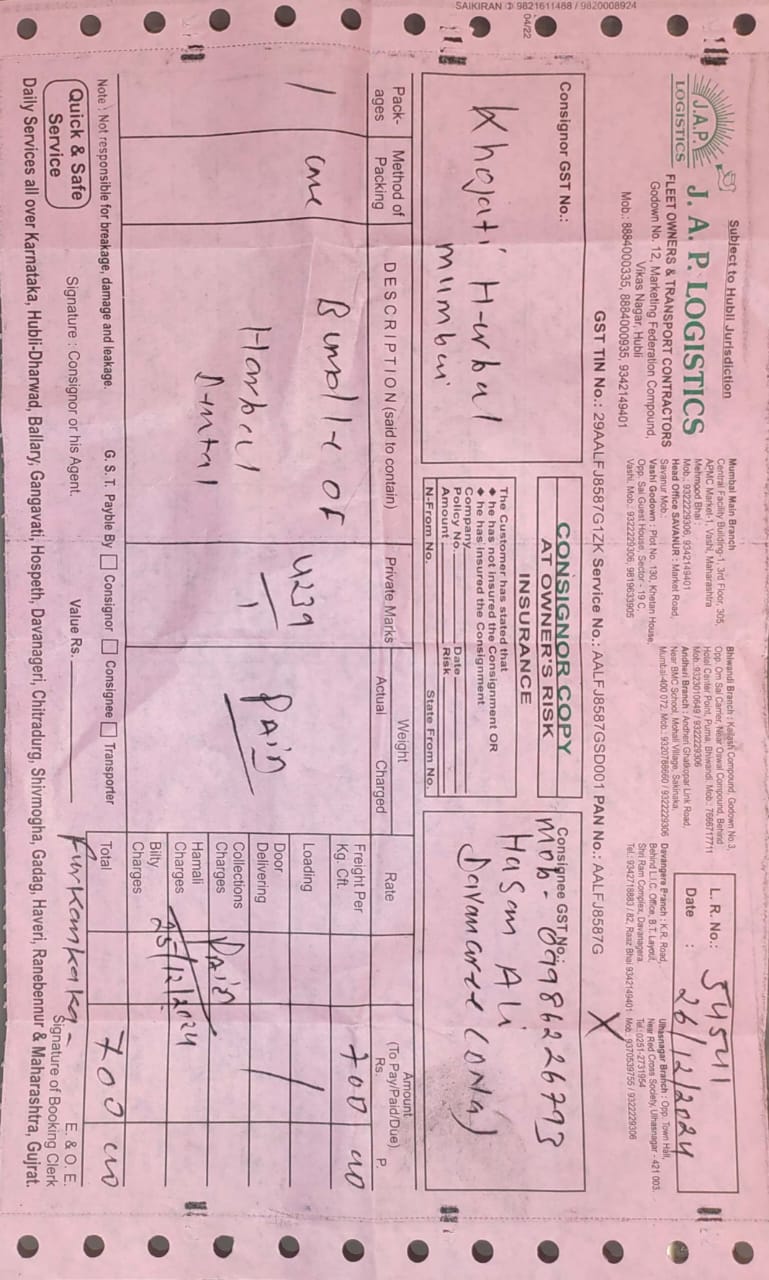 SAIKIRAN ✆ 9821611488 / 9820008924
04/22
Subject to Hubli Jurisdiction
J.A.P.
LOGISTICS
J. A. P. LOGISTICS
FLEET OWNERS & TRANSPORT CONTRACTORS
Godown No. 12, Marketing Federation Compound,
Vikas Nagar, Hubli
Mob.: 8884000335, 8884000935, 9342149401
Mumbai Main Branch
Central Facility Building-1, 3rd Floor, 305,
APMC Market-1, Vashi, Maharashtra
Mehmood Bhai :
Mob.: 9322229306, 9342149401
Head Office SAVANUR : Market Road,
Savanur Mob.:
Vashi Godown : Plot No. 130, Khetan House,
Opp. Sai Guest House, Sector - 19 C,
Vashi. Mob.: 9322229306, 9819633905
Bhiwandi Branch : Kailash Compound, Godown No 3,
Opp. Om Sai Carrier, Near Oswal Compound, Behind
Hotel Center Point, Purna, Bhiwandi. Mob.: 7666717711
Mob.: 9323010649 / 9322229306
Andheri Branch : Andheri Ghatkopar Link Road,
Near BMC School, Mohali Village, Sakinaka,
Mumbai-400 072. Mob.: 9320788660 / 9322229306
Davangere Branch : K.R. Road,
Behind L.I.C. Office, B.T. Layout,
Shri Ram Complex, Davanagera
Tel.: 9342718883 / 82, Raaz Bhai 9342149401
Ulhasnagar Branch : Opp. Town Hall,
Near Red Cross Society, Ulhasnagar - 421 003.
Tel.:0251-2731954
Mob.: 9370539755 / 9322229306
L. R. No.: 54541
Date : 26/12/2024
GST TIN No.: 29AALFJ8587G1ZK Service No.: AALFJ8587GSD001 PAN No.: AALFJ8587G
X
Consignor GST No.:
Khojati Hurbal
mumbai
CONSIGNOR COPY
AT OWNER'S RISK
INSURANCE
The Customer has stated that
◆ he has not insured the Consignment OR
◆ he has insured the Consignment
Company
Policy No. Date
Amount Risk
N-From No. State From No.
Consignee GST No.:
Mob- 8998626793
Hasan Ali
Davanaree (ONG)
Pack-ages
Method of Packing
DESCRIPTION (said to contain)
Private Marks
Weight
Actual Charged
Rate
Amount
(To Pay/Paid/Due)
Rs. P.
1
Bundle of
Harbal
Dental
4239
1
PAID
Freight Per Kg. Cft. 700 00
Loading
Door Delivering
Collections Charges
Hamali Charges
Bilty Charges
PAID
25/12/2024
Total 700 00
Note : Not responsible for breakage, damage and leakage.
G. S. T. Payable By Consignor Consignee Transporter
Quick & Safe
Service
Signature : Consignor or his Agent.
Value Rs.
Furkankaka
E. & O. E.
Signature of Booking Clerk
Daily Services all over Karnataka, Hubli-Dharwad, Ballary, Gangavati, Hospeth, Davanageri, Chitradurg, Shivmogha, Gadag, Haveri, Ranebennur & Maharashtra, Gujrat.